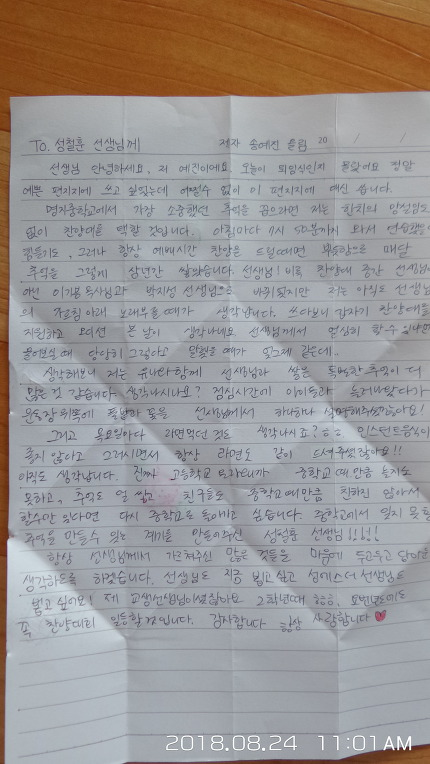 To. 성철훈 선생님께 제자 송예진 올림 20 / /
선생님 안녕하세요. 저 예진이에요. 오늘이 퇴임식인지 몰랐어요 정말
예쁜 편지지에 쓰고 싶었는데 어쩔수 없이 이 편지지에 대신 씁니다.
명지중학교에서 가장 소중했던 추억을 꼽으라면 저는 한치의 망설임도
없이 찬양대를 택할 것입니다. 아침마다 7시 50분까지 와서 연습했던게
힘들기도, 그러나 항상 예배시간 찬양을 드릴때면 뿌듯함으로 매달
추억을 그렇게 삼년간 쌓아왔습니다. 선생님! 비록 찬양대 중간 선생님이
아닌 이기쁨 목사님과 박지성 선생님으로 바뀌었지만 저는 아직도 선생님
의 가르침 아래 노래부를때가 생각납니다. 쓰다보니 갑자기 찬양대를
지원하고 오디션 본 날이 생각나네요 선생님께서 열심히 할수 있냐면서
물어보실때 당당히 그렇다고 말했을 때가 엊그제 같은데..
생각해보니 저는 유난히 함께 선생님과 쌓은 추억이 더
많은 것 같습니다. 생각나시나요? 점심시간에 아이들과 놀러나갔다가
운동장 뒤쪽에 풀밭과 꽃을 선생님께서 하나하나 설명해주셨잖아요!
그리고 목요일마다 라면먹던것도 생각나시죠? ㅎㅎ 인스턴트음식이
좋지 않다고 그러시면서 항상 라면도 같이 드셔주셨잖아요!!
아직도 생각납니다. 진짜 고등학교 오자니까 중학교 때 만큼 놀지도
못하고, 추억도 덜 쌓고 친구들도 중학교 때만큼 친하지 않아서
할수만 있다면 다시 중학교로 돌아가고 싶습니다. 중학교에서 잊지 못할
추억을 만들수 있는 계기를 만들어주신 성철훈 선생님!!!!!
항상 선생님께서 가르쳐주신 많은 것들을 마음에 두고두고 담아
생각하도록 하겠습니다. 선생님도 지금 보고 싶고 성에스더 선생님도
보고 싶어요! 제 교생선생님이셨잖아요 2학년때 ㅎㅎ,
꼭 찬양대회 일등할것입니다. 감사합니다 항상 사랑합니다 ♥
2018.08.24 11:01AM